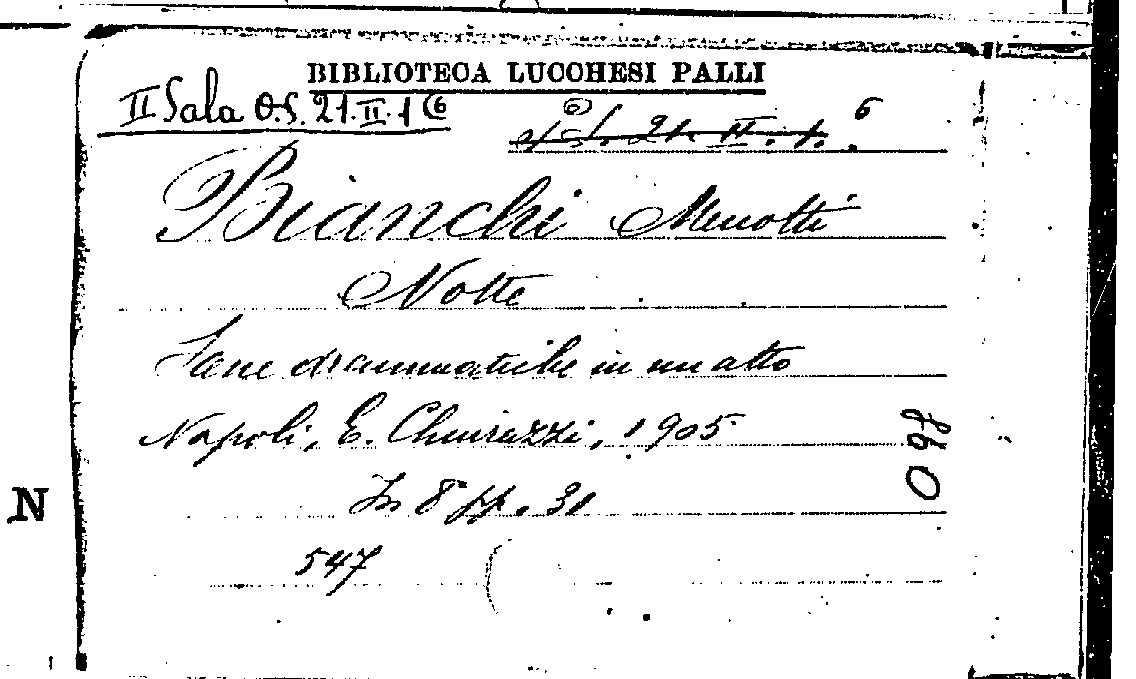 BIBLIOTECA LUCCHESI PALLI
II Sala O.S. 21.II.1 (6
21. II. 1. 6
Bianchi Menotti
Notte
Scene drammatiche in un atto
Napoli, E. Chiurazzi, 1905
In 8° pp. 31
547
N